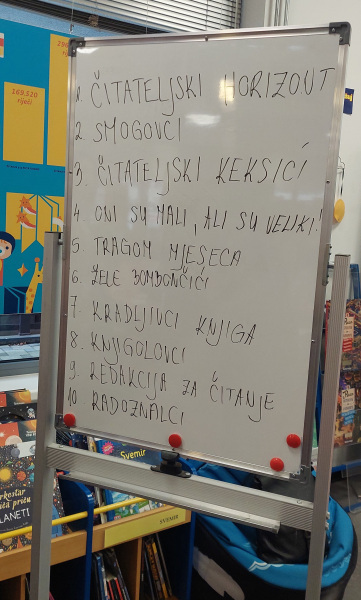 169,520
riječi
1. ČITATELJSKI HORIZOUT
2. SMOGOVCI
3. ČITATELJSKI KEKSIĆI
4. ONI SU MALI, ALI SU VELIKI!
5. TRAGOM MJESECA
6. ŽELE BOMBONČIĆI
7. KRADLJIVCI KNJIGA
8. KNJIGOLOVCI
9. REDAKCIJA ZA ČITANJE
10 RADOZNALCI
Svemir
SVEMIR